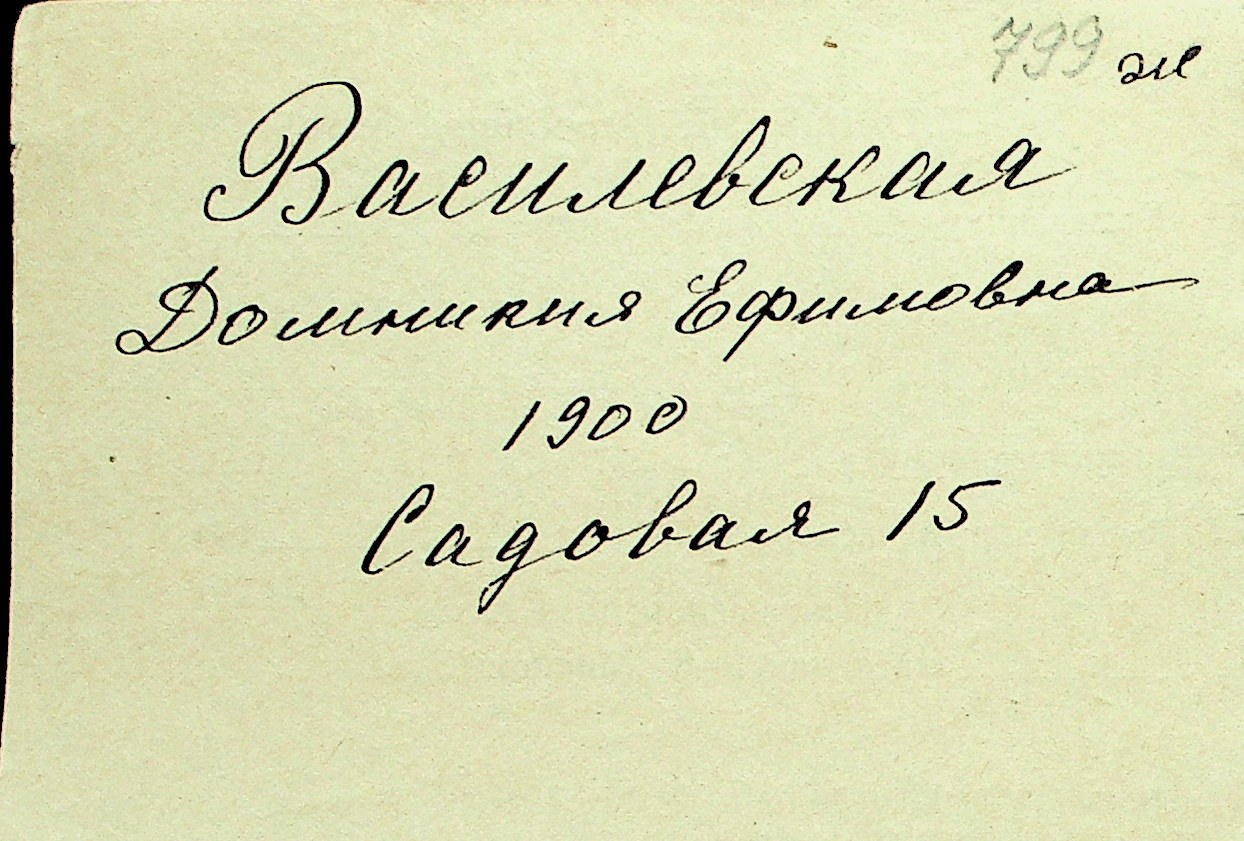 799 ж
Василевская
Домникия Ефимовна
1900
Садовая 15